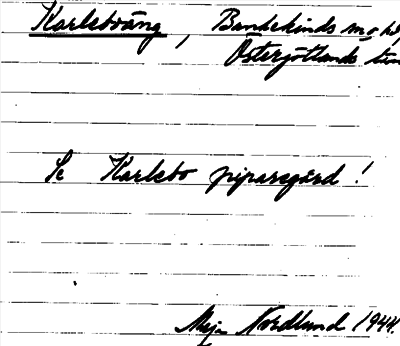 Karlstväng, Bankekinds
Östergötlands
Se Karlsbo piparsgård!
Maja Nordlund 1944.